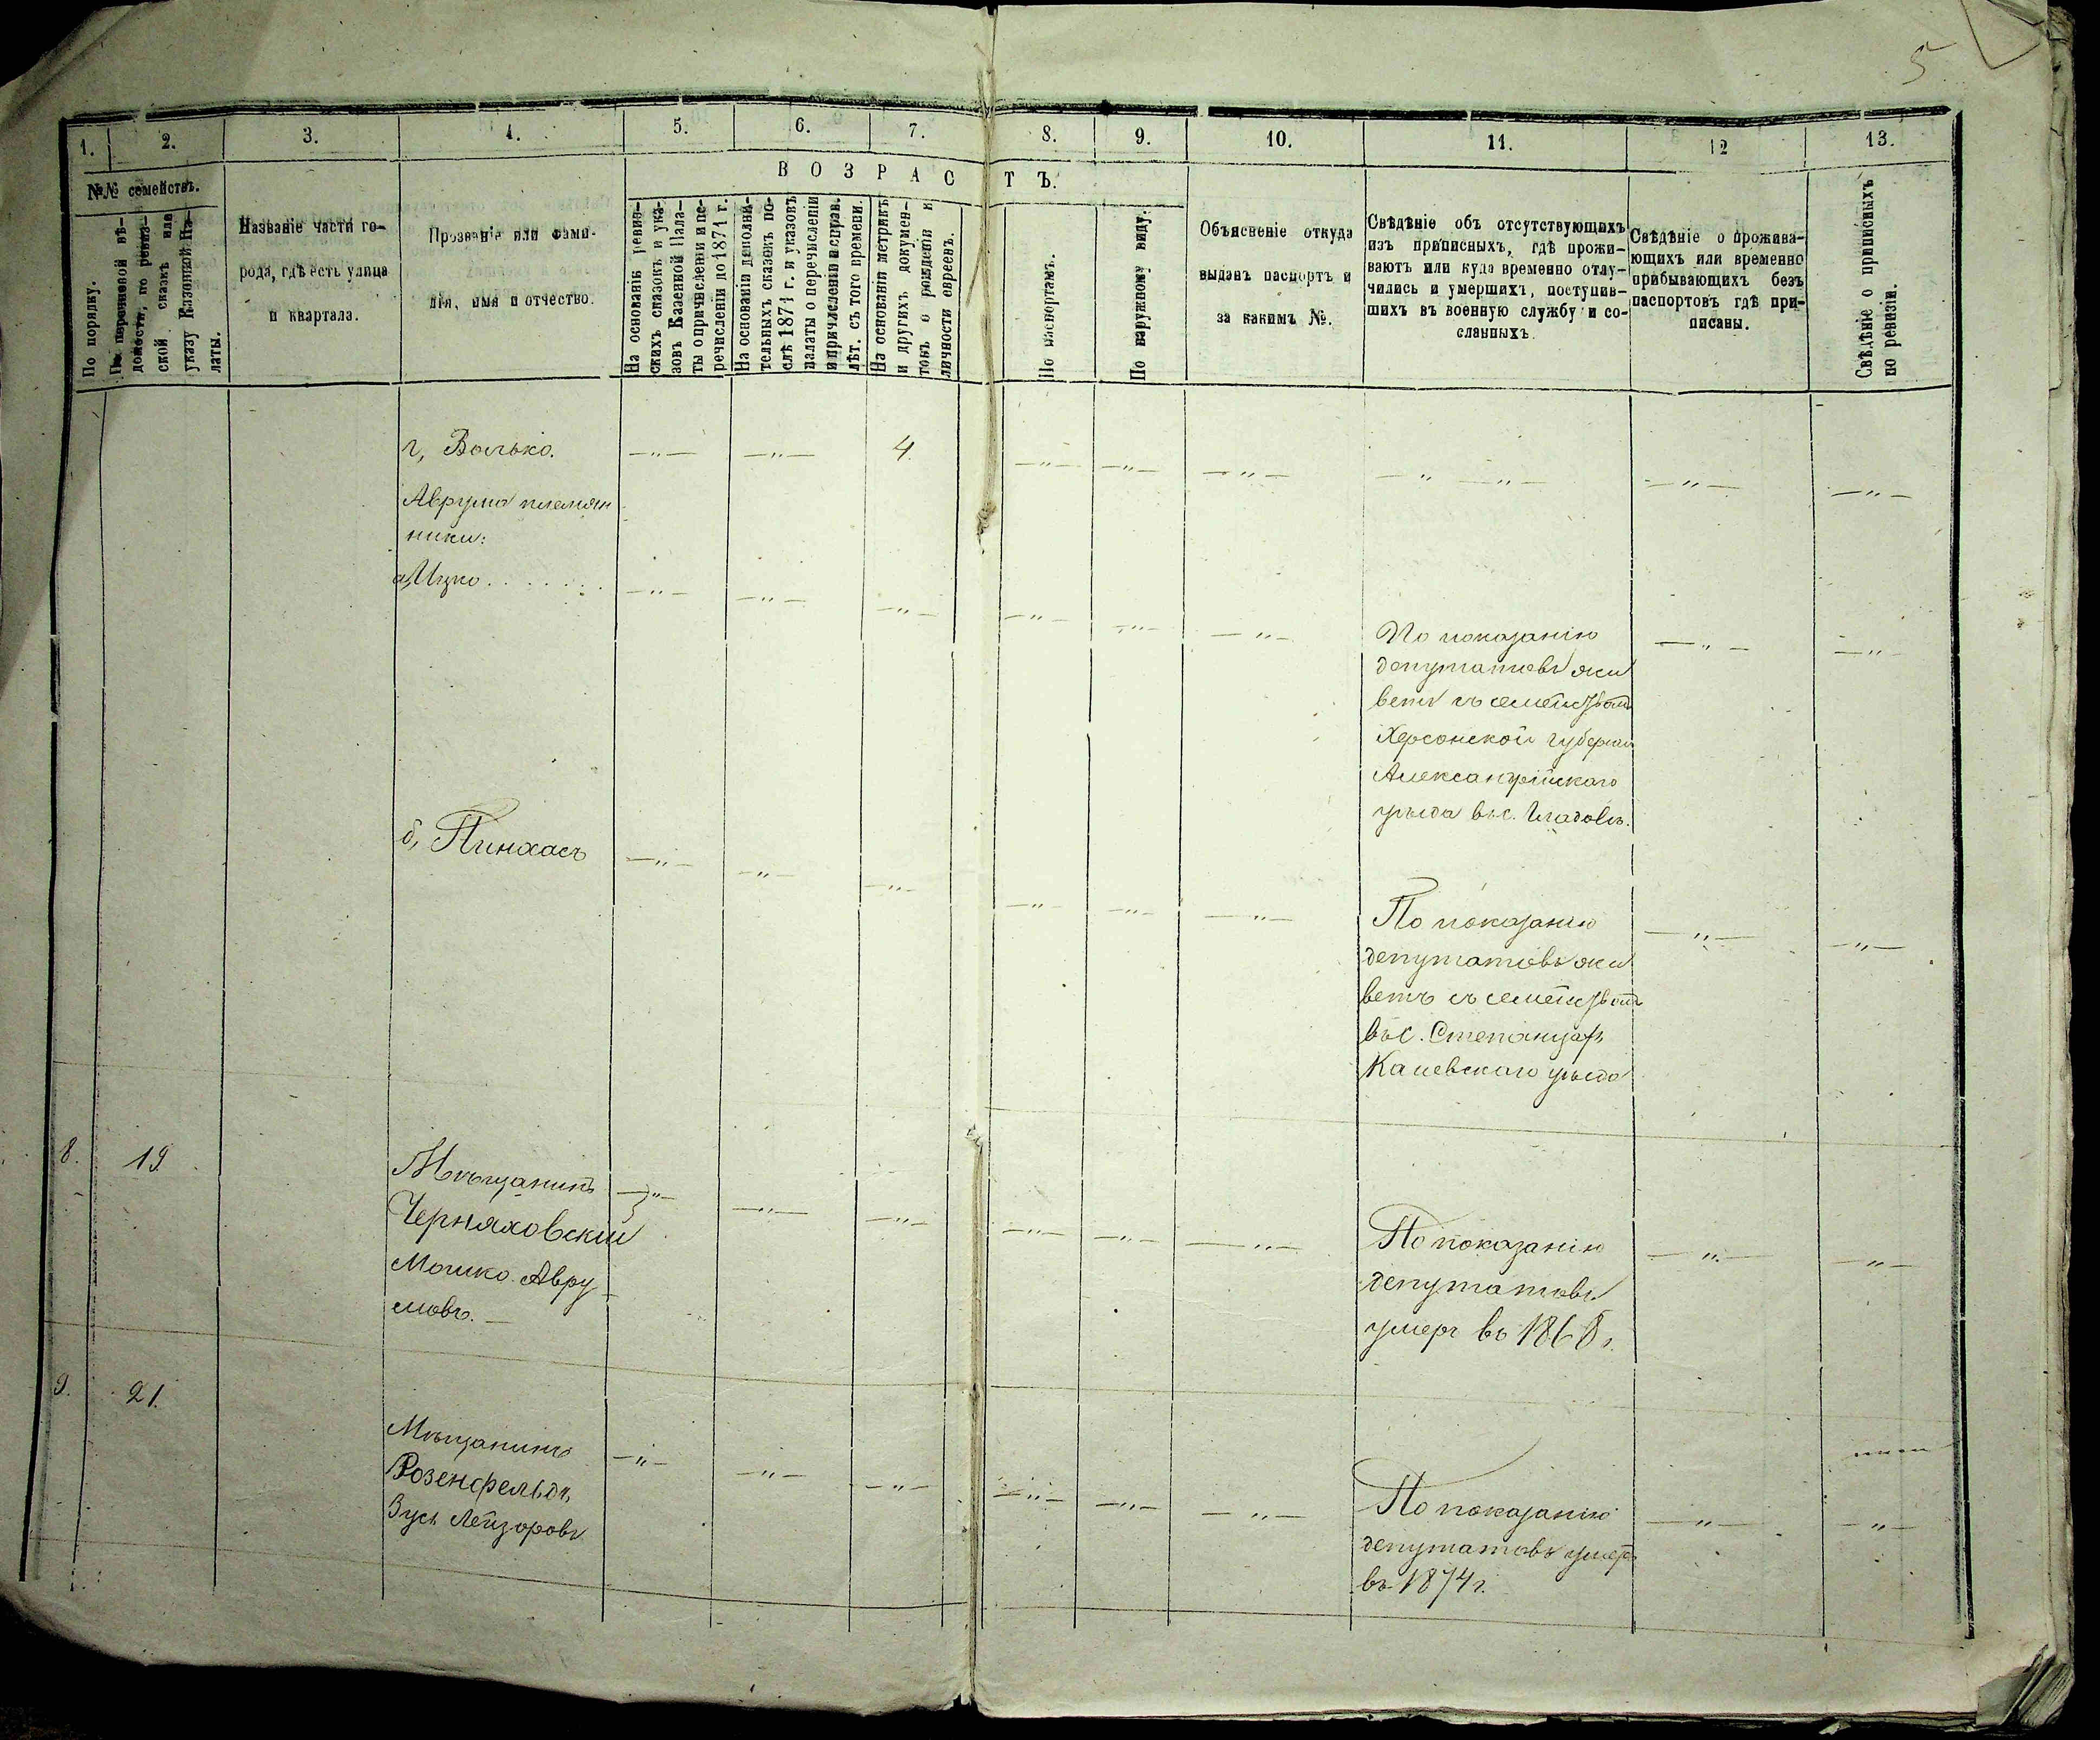 5
1. 2. 3. 4. 5. 6. 7. 8. 9. 10. 11. 12 13.
№№ семействъ.
По порядку.
По перечневой вѣ-
домости, по ревиз-
ской сказкѣ или
указу Казенной Па-
латы.
Названіе части го-
рода, гдѣ есть улица
и квартала.
Прозваніе или фами-
лія, имя и отчество.
ВОЗРАСТЪ.
На основаніи ревиз-
скихъ сказокъ и ука-
зовъ Казенной Пала-
ты о причисленіи и пе-
речисленіи до 1871 г.
На основаніи дополни-
тельныхъ сказокъ по-
слѣ 1871 г. и указовъ
палаты о перечисленіи
и причисленіи и справ.
лѣт. съ того времени.
На основаніи метрикъ
и другихъ докумен-
товъ о рожденіи и
личности евреевъ.
По паспортамъ.
По наружному виду.
Объясненіе откуда
выданъ паспортъ и
за какимъ №.
Свѣдѣніе объ отсутствующихъ
изъ приписныхъ, гдѣ прожи-
ваютъ или куда временно отлу-
чились и умершихъ, поступив-
шихъ въ военную службу и со-
сланныхъ.
Свѣдѣніе о прожива-
ющихъ или временно
прибывающихъ безъ
паспортовъ гдѣ при-
писаны.
Свѣдѣніе о приписныхъ
по ревизіи.
г, Волько. —"— —"— 4. —"— —"— —"— —"— —"— —"— —"—
Аврума племян
ники:
а, Ицко . . . . . . . —"— —"— —"— —"— —"— —"—
По показанію —"— —"—
депутатовъ жи
ветъ съ семействомъ
Херсонской губерніи
Александрійскаго
уѣзда въ с.
б, Пинхасъ —"— —"— —"— —"— —"— —"—
По показанію —"— —"—
депутатовъ жи
ветъ съ семействомъ
въ с. Степанцахъ
Каневскаго уѣзда
8. 19 Мѣщанинъ —"— —"— —"— —"— —"— —"—
Черняховскій
Мошко Авру
мовъ. —
По показанію —"— —"—
депутатовъ
умеръ въ 1868 г.
9. 21. Мѣщанинъ —"— —"— —"— —"— —"— —"—
Розенфельдъ
Зусь Лейзоровъ
По показанію —"— —"—
депутатовъ умеръ
въ 1874 г.